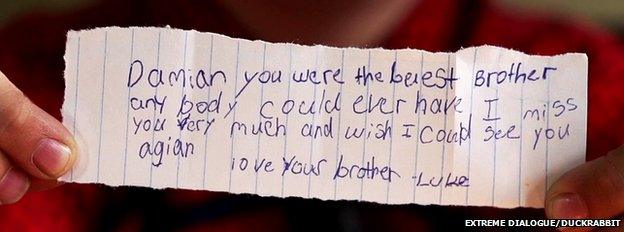 Damian you were the beest Brother
any body could ever have I miss
you very much and wish I could see you
agian
love your brother - Luke
EXTREME DIALOGUE/DUCKRABBIT